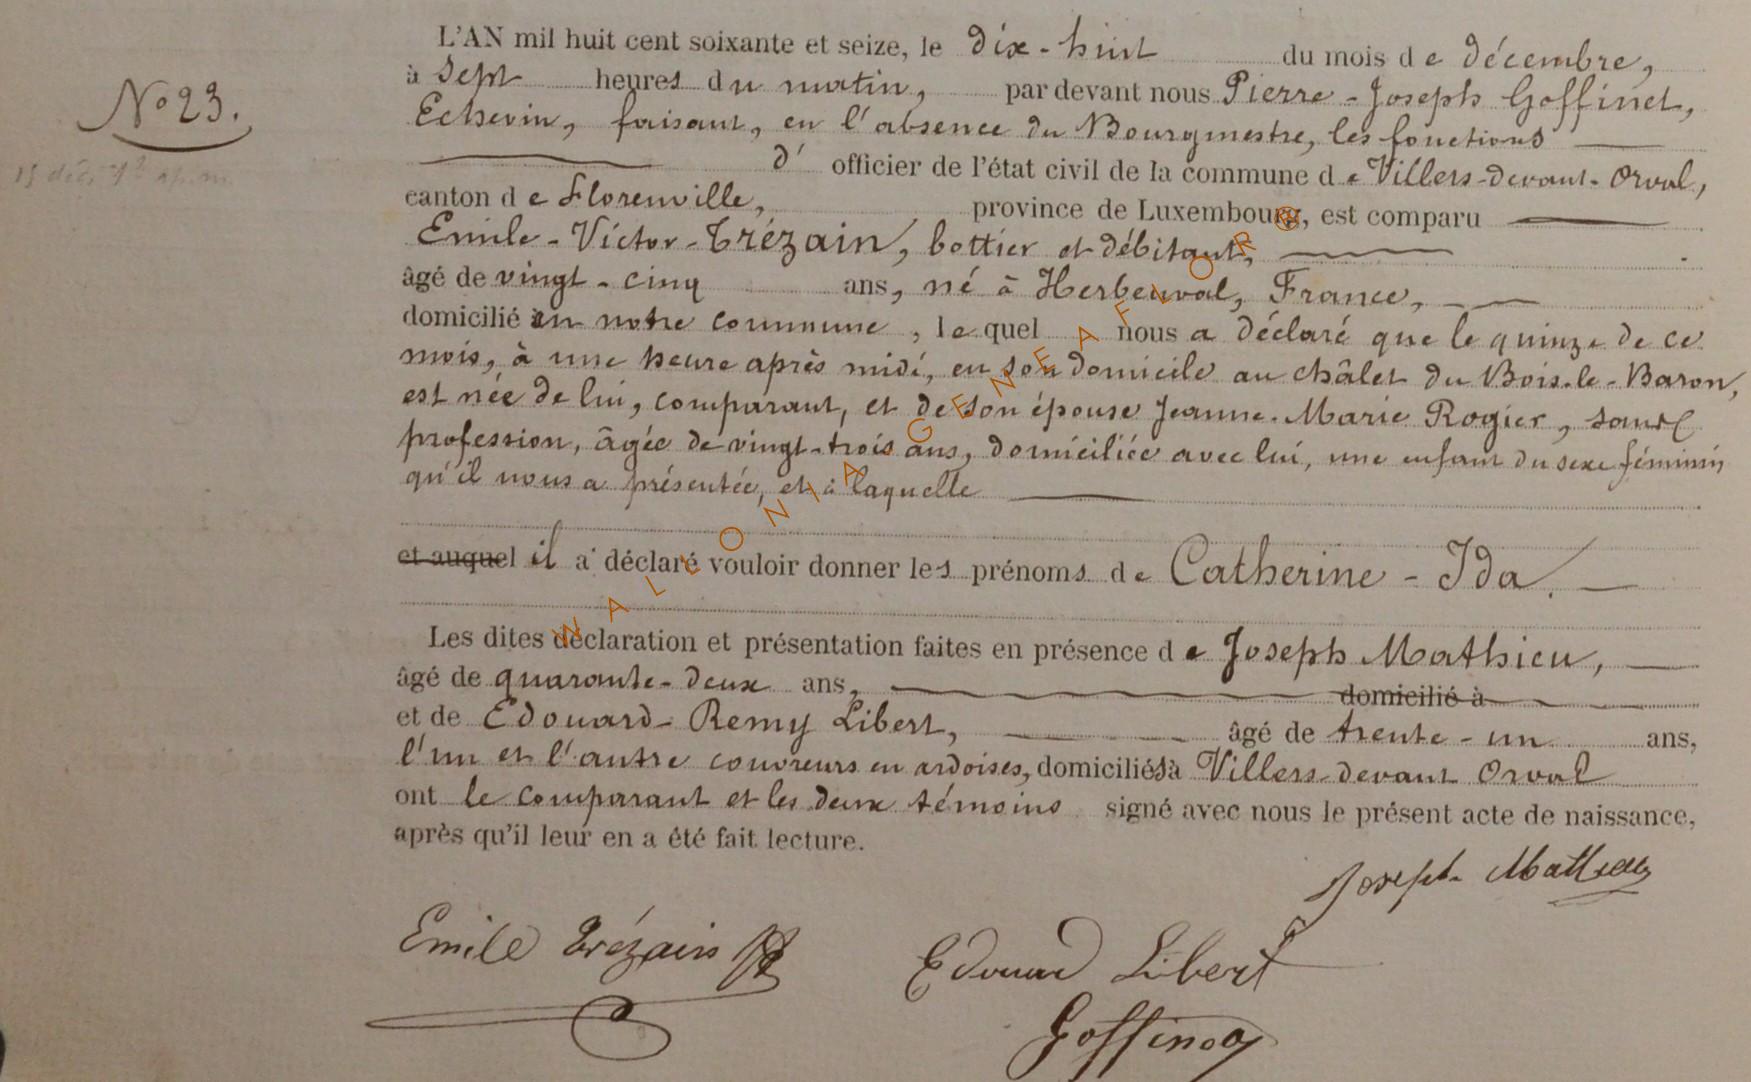 L'AN mil huit cent soixante et seize, le dix-huit du mois de décembre,
N° 23.
à sept heures du matin, par devant nous Pierre-Joseph Goffinet,
Echevin, faisant, en l'absence du Bourgmestre, les fonctions
15 déc. 1h ap. m.
d' officier de l'état civil de la commune de Villers-devant-Orval,
canton de Florenville, province de Luxembourg, est comparu
Emile-Victor-Trézain, bottier et débitant,
âgé de vingt-cinq ans, né à Herbeuval, France,
domicilié en notre commune, lequel nous a déclaré que le quinze de ce
mois, à une heure après midi, en son domicile au châlet du Bois-le-Baron,
est née de lui, comparant, et de son épouse Jeanne-Marie Rogier, sans
profession, âgée de vingt-trois ans, domiciliée avec lui, une enfant du sexe féminin
qu'il nous a présentée, et à laquelle
et auquel il a déclaré vouloir donner les prénoms de Catherine-Ida.
Les dites déclaration et présentation faites en présence de Joseph Mathieu,
âgé de quarante-deux ans, domicilié à
et de Edouard-Remy Libert, âgé de trente-un ans,
l'un et l'autre couvreurs en ardoises, domiciliés à Villers-devant Orval
ont le comparant et les deux témoins signé avec nous le présent acte de naissance,
après qu'il leur en a été fait lecture.
Joseph Mathieu
Emile Trézain
Edouard Libert
Goffinet
WALLONIA GENEAFLORE